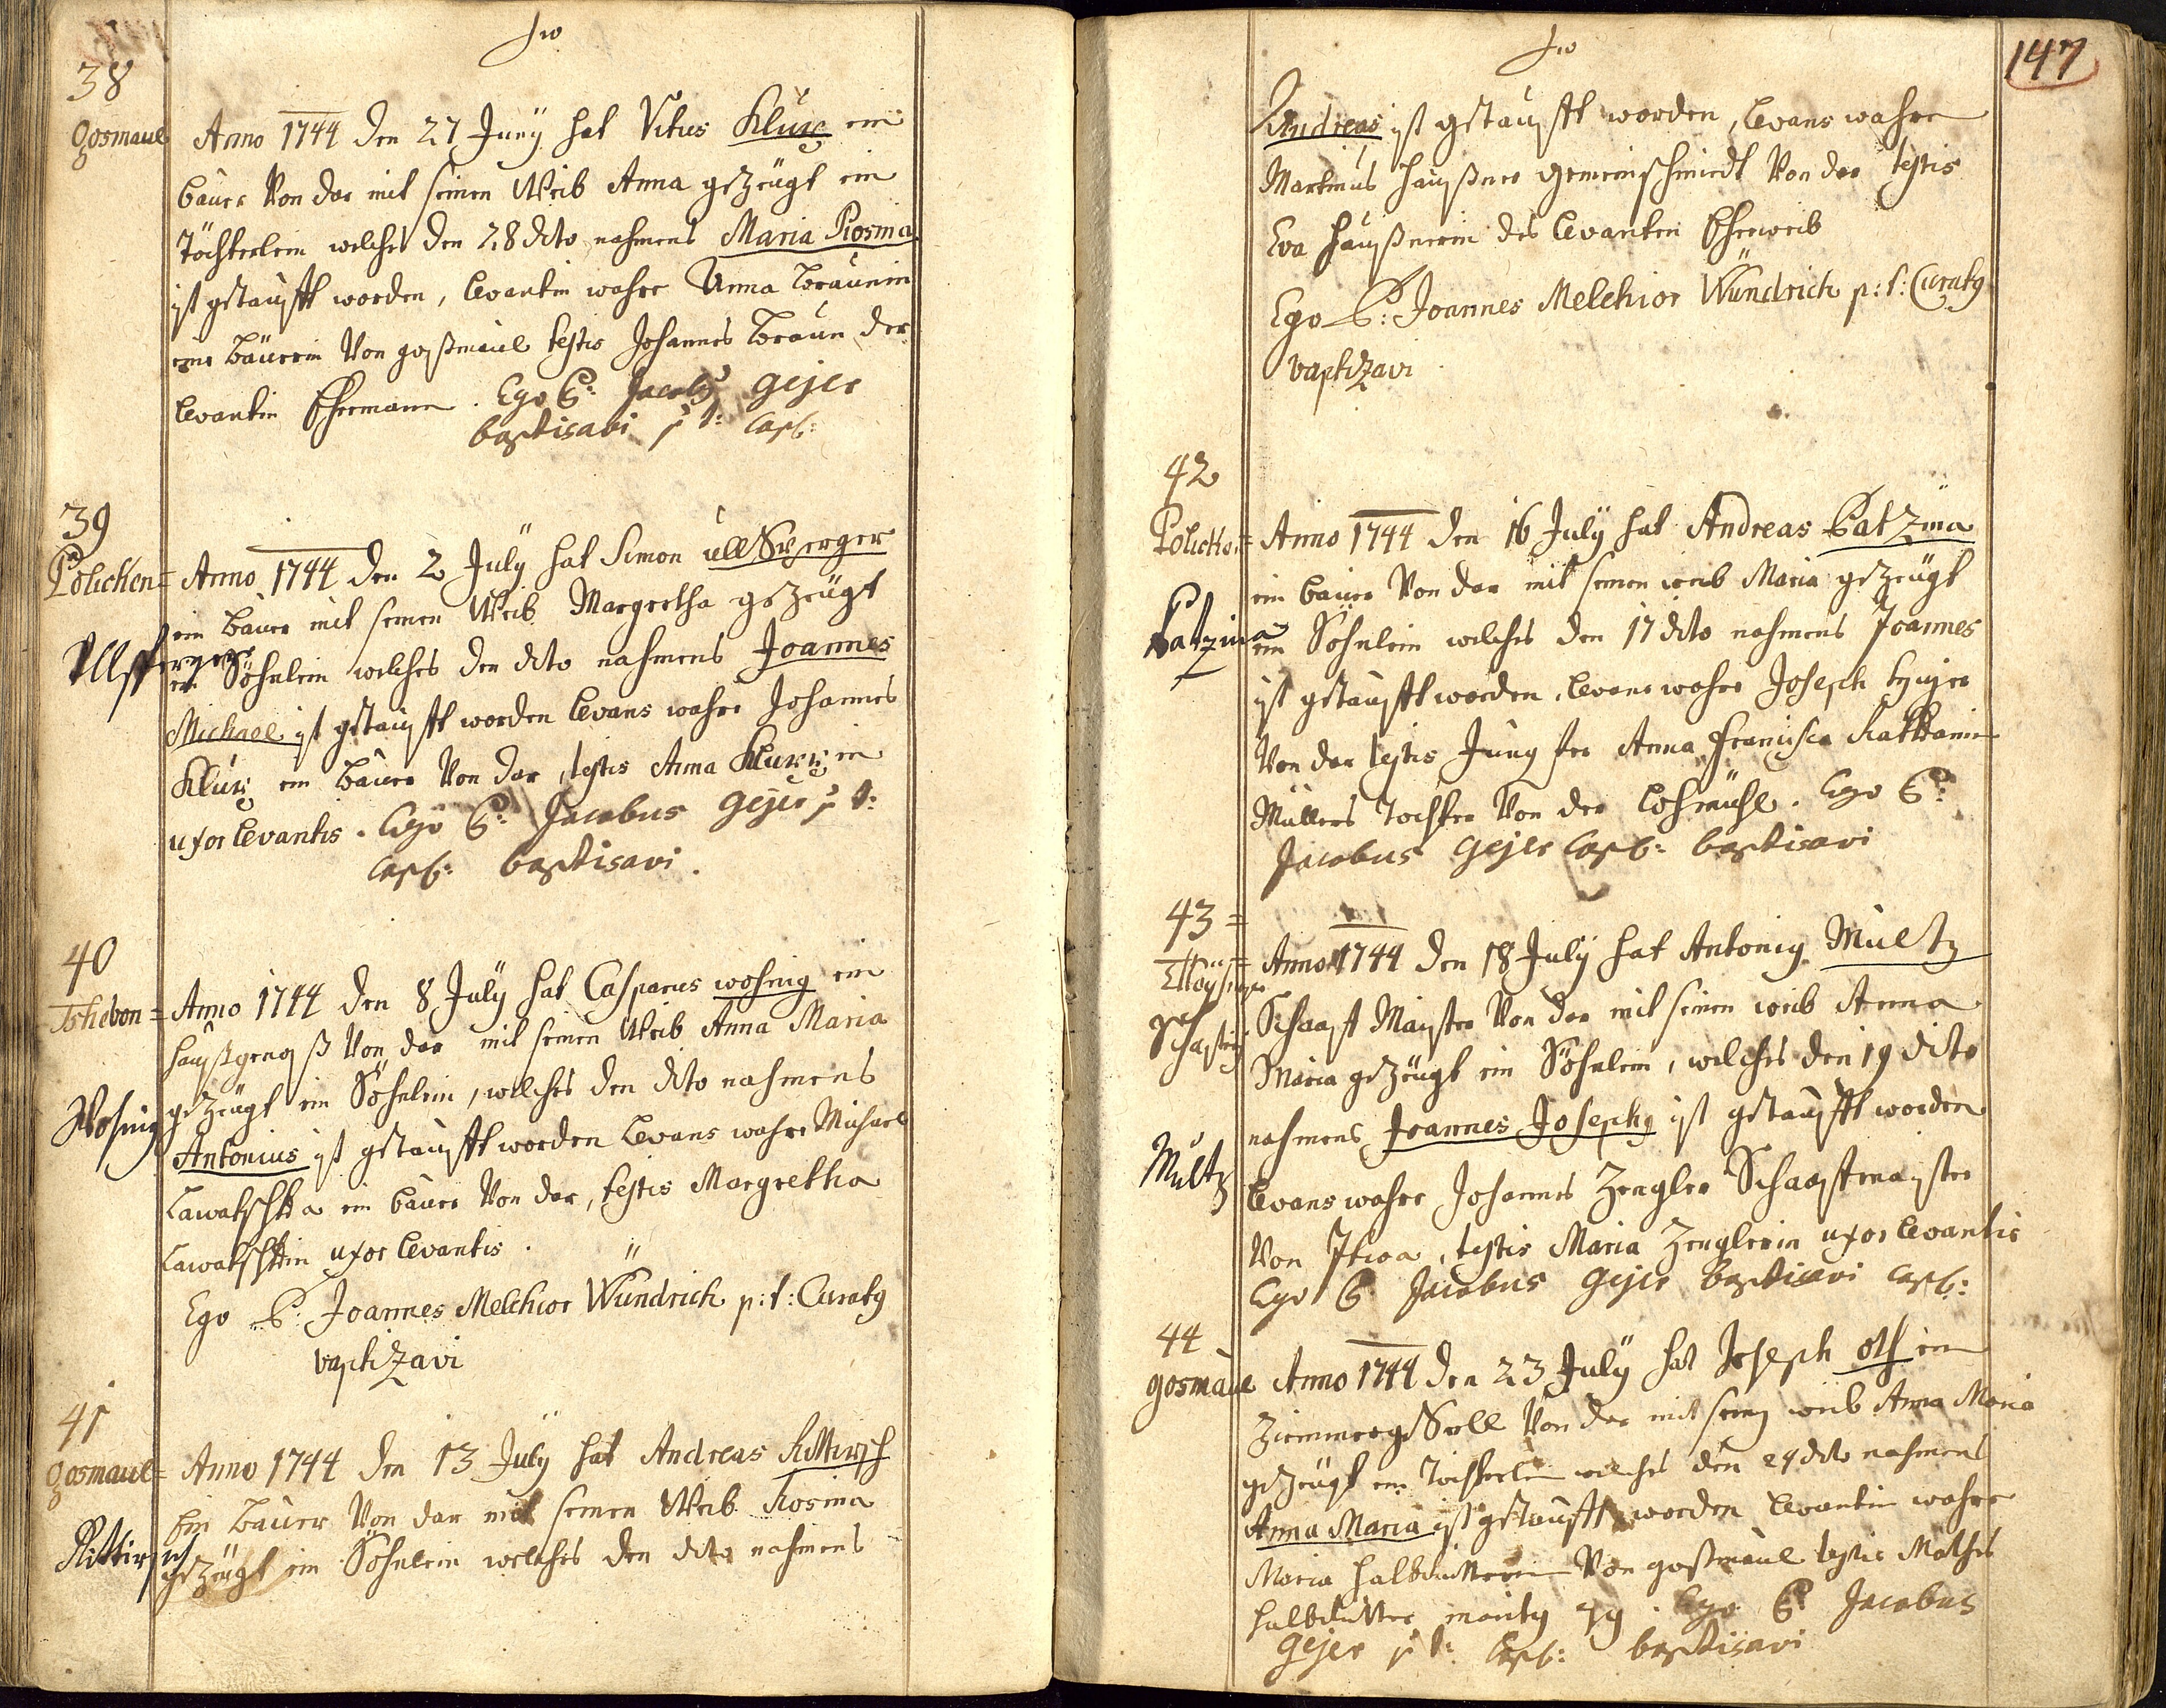 38
Gosmaul
Anno 1744 den 27 Junÿ hat Vitus Klurz ein
bauer Von dar mit seinen Weib Anna gezeügt ein
Töchterlein welches den 28 dito nahmens Maria Rosina
ist getaufft worden, levantin wahre Anna Braunin
eine Bäuerin Von goßmaul testis Johannes Braun der
levantin Ehemann. Ego P: Jacobus Gejer
baptisavi p t: Cap:
39
Pölicken=
Anno 1744 den 2 July hat Simon ullSperger
ein Bauer mit seinen Weib Margretha gezeügt
Ullsperger
ein Söhnlein welches den dito nahmens Joannes
Michael ist getaufft worden levans wahre Johannes
Klurz ein Bauer Von dar, testis Anna Klurzin
uxor levantis. Ego P: Jacobus Gejer p t:
Cap: baptisavi.
40
Tschebon=
Anno 1744 den 8 July hat Casparus wohnig ein
haußgenoß Von dar mit seinen Weib Anna Maria
Wohnig
gezeügt ein Söhnlein, welches den dito nahmens
Antonius ist getaufft worden Levans wahre Michael
Lawatschka ein bauer Von dar, testis Margretha
Lawatschkin uxor levantis.
Ego P: Joannes Melchior Wündrich p: t: Curatg
baptizavi
41
gosmaul=
Anno 1744 den 13 July hat Andreas Rittirsch
Ein Bauer Von dar mit seinen Weib Rosina
Rittirsch
gezeügt ein Söhnlein welches den dito nahmens
147
Andreas ist getaufft worden, levans wahre
Martinus haußner gemeinschmiedt Von dar testis
Eva haußnerin des levanten Eheweib
Ego P: Joannes Melchior Wündrich p: t: Curatg
baptizavi
42
Pölicken=
Anno 1744 den 16 July hat Andreas Patzina
ein bauer Von dar mit seinen weib Maria gezeügt
Patzina
ein Söhnlein welches den 17 dito nahmens Joannes
ist getaufft worden. levans wahre Joseph
Von dar testis Jungfer Anna Francisca
Müllers Tochter Von der Lohmühl. Ego P:
Jacobus Gejer Cap: baptisavi
43=
Anno 1744 den 18 July hat Antonig Multz
Schaaff Maister Von dar mit seinen weib Anna
Maria gezeügt ein Söhnlein, welches den 19 dito
nahmens Joannes Josephg ist getaufft worden
Multz
levans wahre Johannes Zengler Schaaffmaister
Von Itwa, testis Maria Zenglerin uxor levantis
Ego P. Jacobus Gejer baptisavi Cap:
44
gosmaul
Anno 1744 den 23 July hat Joseph Ott ein
ZimmergSell Von dar mit seing weib Anna Maria
gezeügt ein Tochterlein welches den 24 dito nahmens
Anna Maria ist getaufft worden levantin wahre
Maria Von goßmaul testis Mathes
. Ego P. Jacobus
Gejer p t: Cap: baptisavi